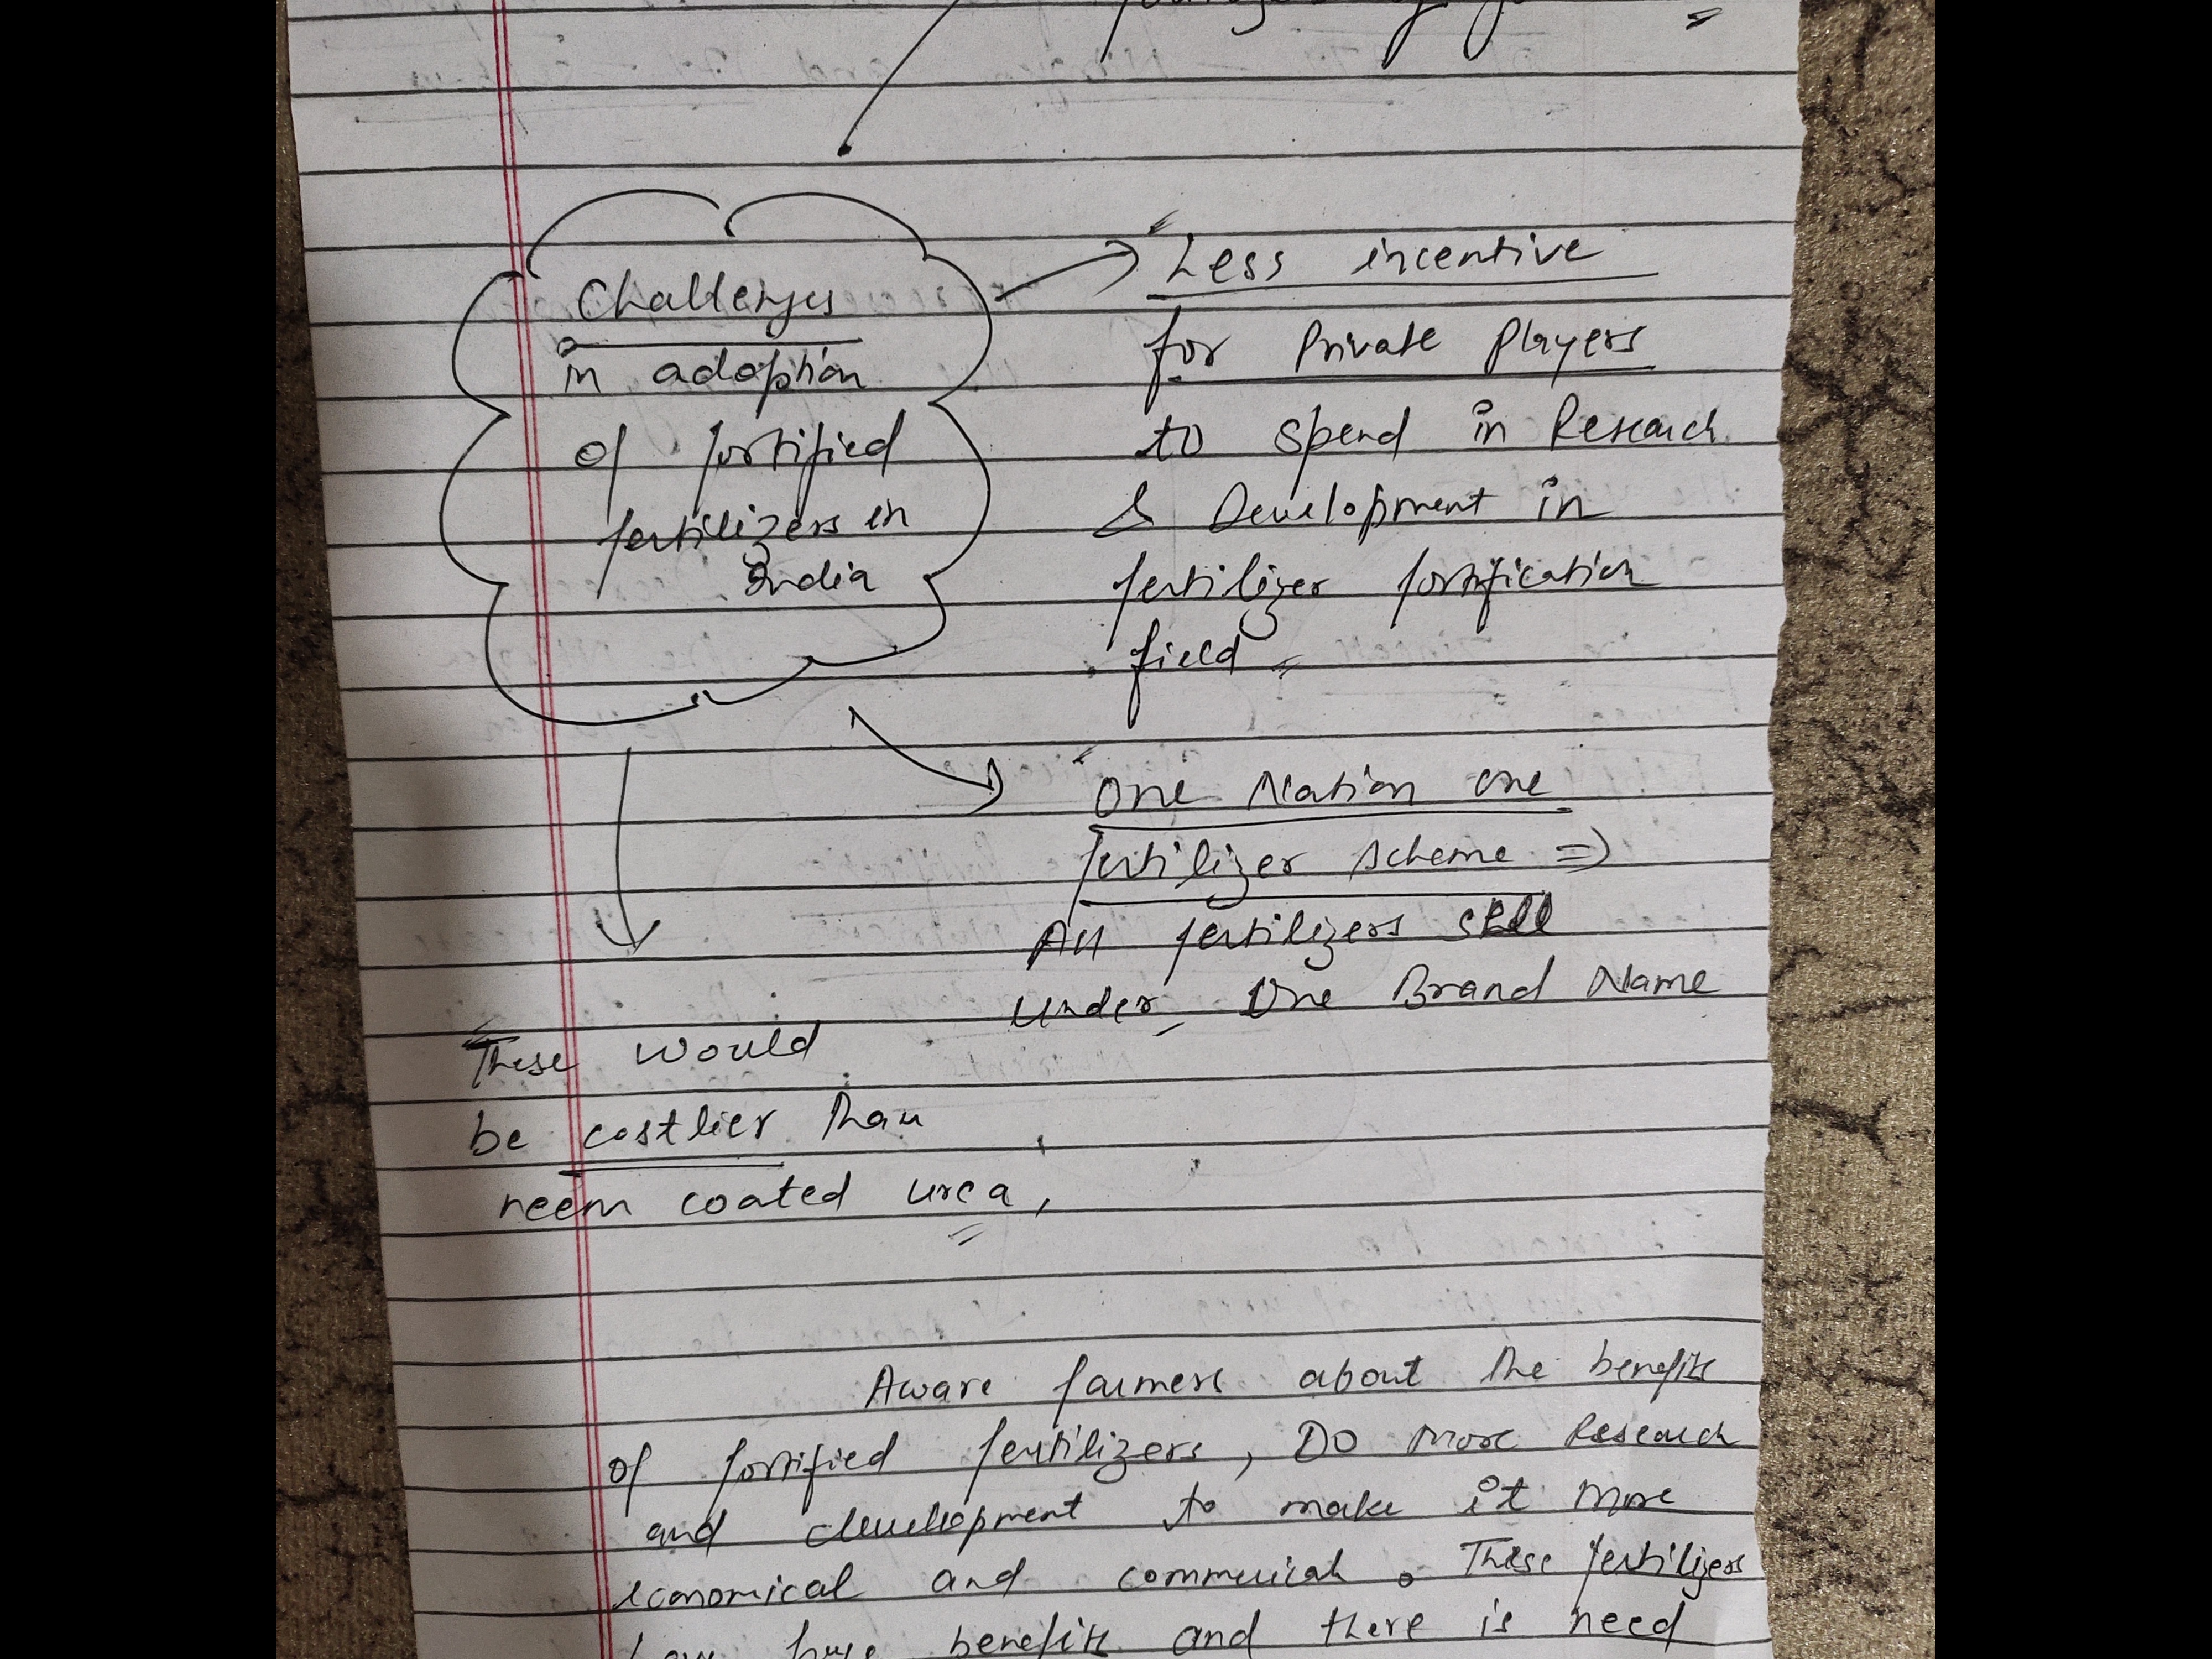 Challenges
in adoption
of fortified
fertilizers in
India
Less incentive
for Private Players
to spend in Research
& Development in
fertilizer fortification
field
One Nation one
fertilizer scheme =>
All fertilizers
under One Brand Name
These would
be costlier than
neem coated urea,
Aware farmers about the benefits
of fortified fertilizers, Do more Research
and development to make it more
economical and . These fertilizers
benefits and there is need